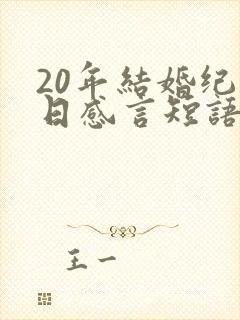 20年結婚纪
日感言短語
王一